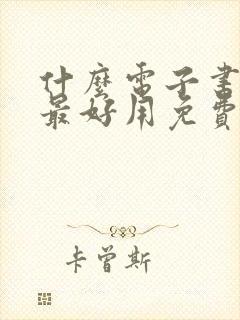 什麼電子書
最好用免費
卡曾斯